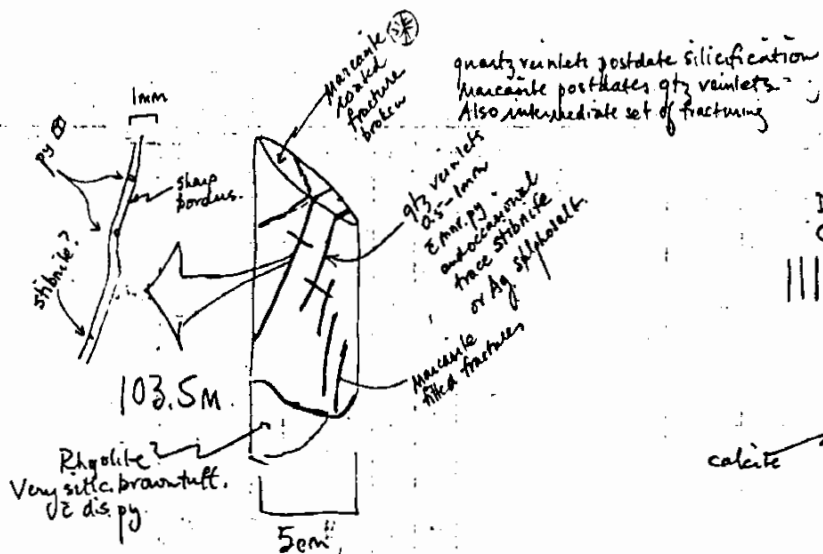 quartz veinlets postdate silicification
marcasite postdates qtz veinlets
Also intermediate set of fracturing
1mm
py
sharp
borders.
stibnite?
marcasite
coated
fracture
broken
qtz veinlets
0.5-1mm
c̄ mnr. py.
and occasional
trace stibnite
or Ag sulphosalt.
marcasite
filled fractures
103.5M
Rhyolite?
Very silic. brown tuff.
c̄ dis. py.
5cm
calcite